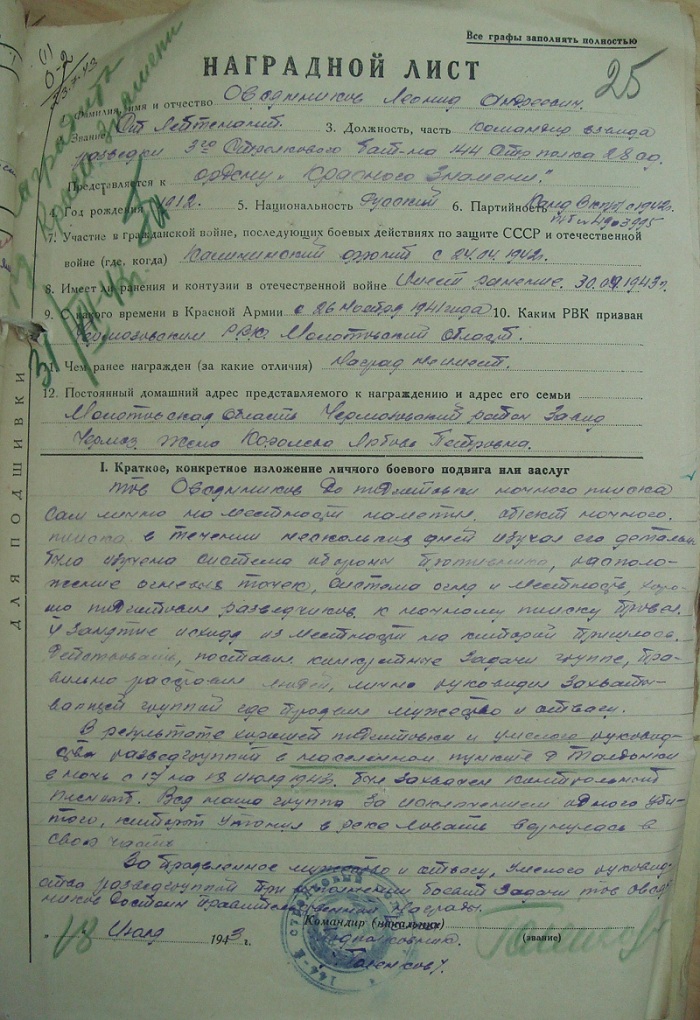 Все графы заполнять полностью
25
НАГРАДНОЙ ЛИСТ
Фамилия, имя и отчество Овсянников Леонид Андреевич
Звание Ст. Лейтенант. 3. Должность, часть командир взвода
разведки 3го Стрелкового бат-на 144 Стр полка 28 сд.
Представляется к ордену „Красного Знамени."
4. Год рождения 1912. 5. Национальность Русский 6. Партийность Канд ВКП(б) с 1942г.
7. Участие в гражданской войне, последующих боевых действиях по защите СССР и отечественной
войне (где, когда) Калининский фронт с 24.04.1942г.
8. Имеет ли ранения и контузии в отечественной войне Имеет ранение. 1943г.
9. С какого времени в Красной Армии с 26 Ноября 1941 года 10. Каким РВК призван
Чермозовским РВК Молотовский области.
11. Чем ранее награжден (за какие отличия) Наград не имеет.
12. Постоянный домашний адрес представляемого к награждению и адрес его семьи
Молотовская область район Завод
Чермоз жена Королева Любовь Петровна.
I. Краткое, конкретное изложение личного боевого подвига или заслуг
тов Овсянников До подготовки ночного поиска
сам лично на местности наметил объект ночного
поиска в течении нескольких дней изучал его детально
была изучена система обороны противника, располо-
жение огневых точек, система огня и местность, хоро-
шо подготовил разведчиков к ночному поиску провел
занятие исходя из местности на которой пришлось
действовать, поставил конкретные задачи группе, пра-
вильно расставил людей, лично руководил захваты-
вающей группой где проявил мужество и отвагу.
В результате хорошей подготовки и умелого руковод-
ства разведгруппой в населенном пункте
в ночь с 17 на 18 июля 1943г. был захвачен контрольный
пленный. Вся наша группа за исключением одного уби-
того, который утонул в реке Ловать вернулась в
свою часть.
За проявленное мужество и отвагу, умелого руковод-
ства разведгруппой при выполнении боевой задачи тов Овся
нников достоин правительственной награды.
Командир (начальник)
подполковник
„18" Июля 1943 г. (звание)
ДЛЯ ПОДШИВКИ